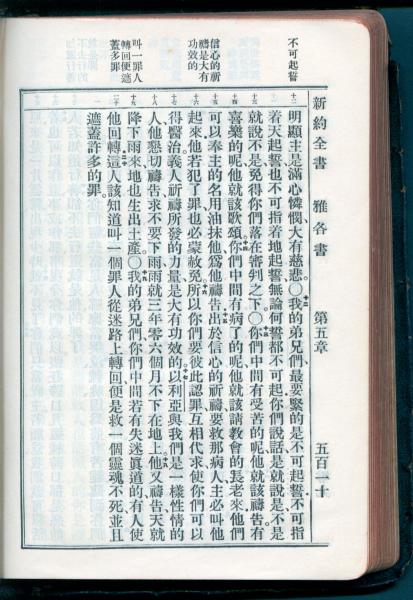 新約全書 雅各書 第五章 五百一十
不可起誓
信心的祈
禱是大有
功效的
叫一罪人
轉回便遮
蓋多罪
明顯主是滿心憐憫大有慈悲○我的弟兄們最要緊的是不可起誓不可指
着天起誓也不可指着地起誓無論何誓都不可起你們說話是就說是不是
就說不是免得你們落在審判之下○你們中間有受苦的呢他就該禱告有
喜樂的呢他就該歌頌你們中間有病了的呢他就該請教會的長老來他們
可以奉主的名用油抹他爲他禱告出於信心的祈禱要救那病人主必叫他
起來他若犯了罪也必蒙赦免所以你們要彼此認罪互相代求使你們可以
得醫治義人祈禱所發的力量是大有功效的以利亞與我們是一樣性情的
人他懇切禱告求不要下雨雨就三年零六個月不下在地上他又禱告天就
降下雨來地也生出土產○我的弟兄們你們中間若有失迷眞道的有人使
他回轉這人該知道叫一個罪人從迷路上轉回便是救一個靈魂不死並且
遮蓋許多的罪